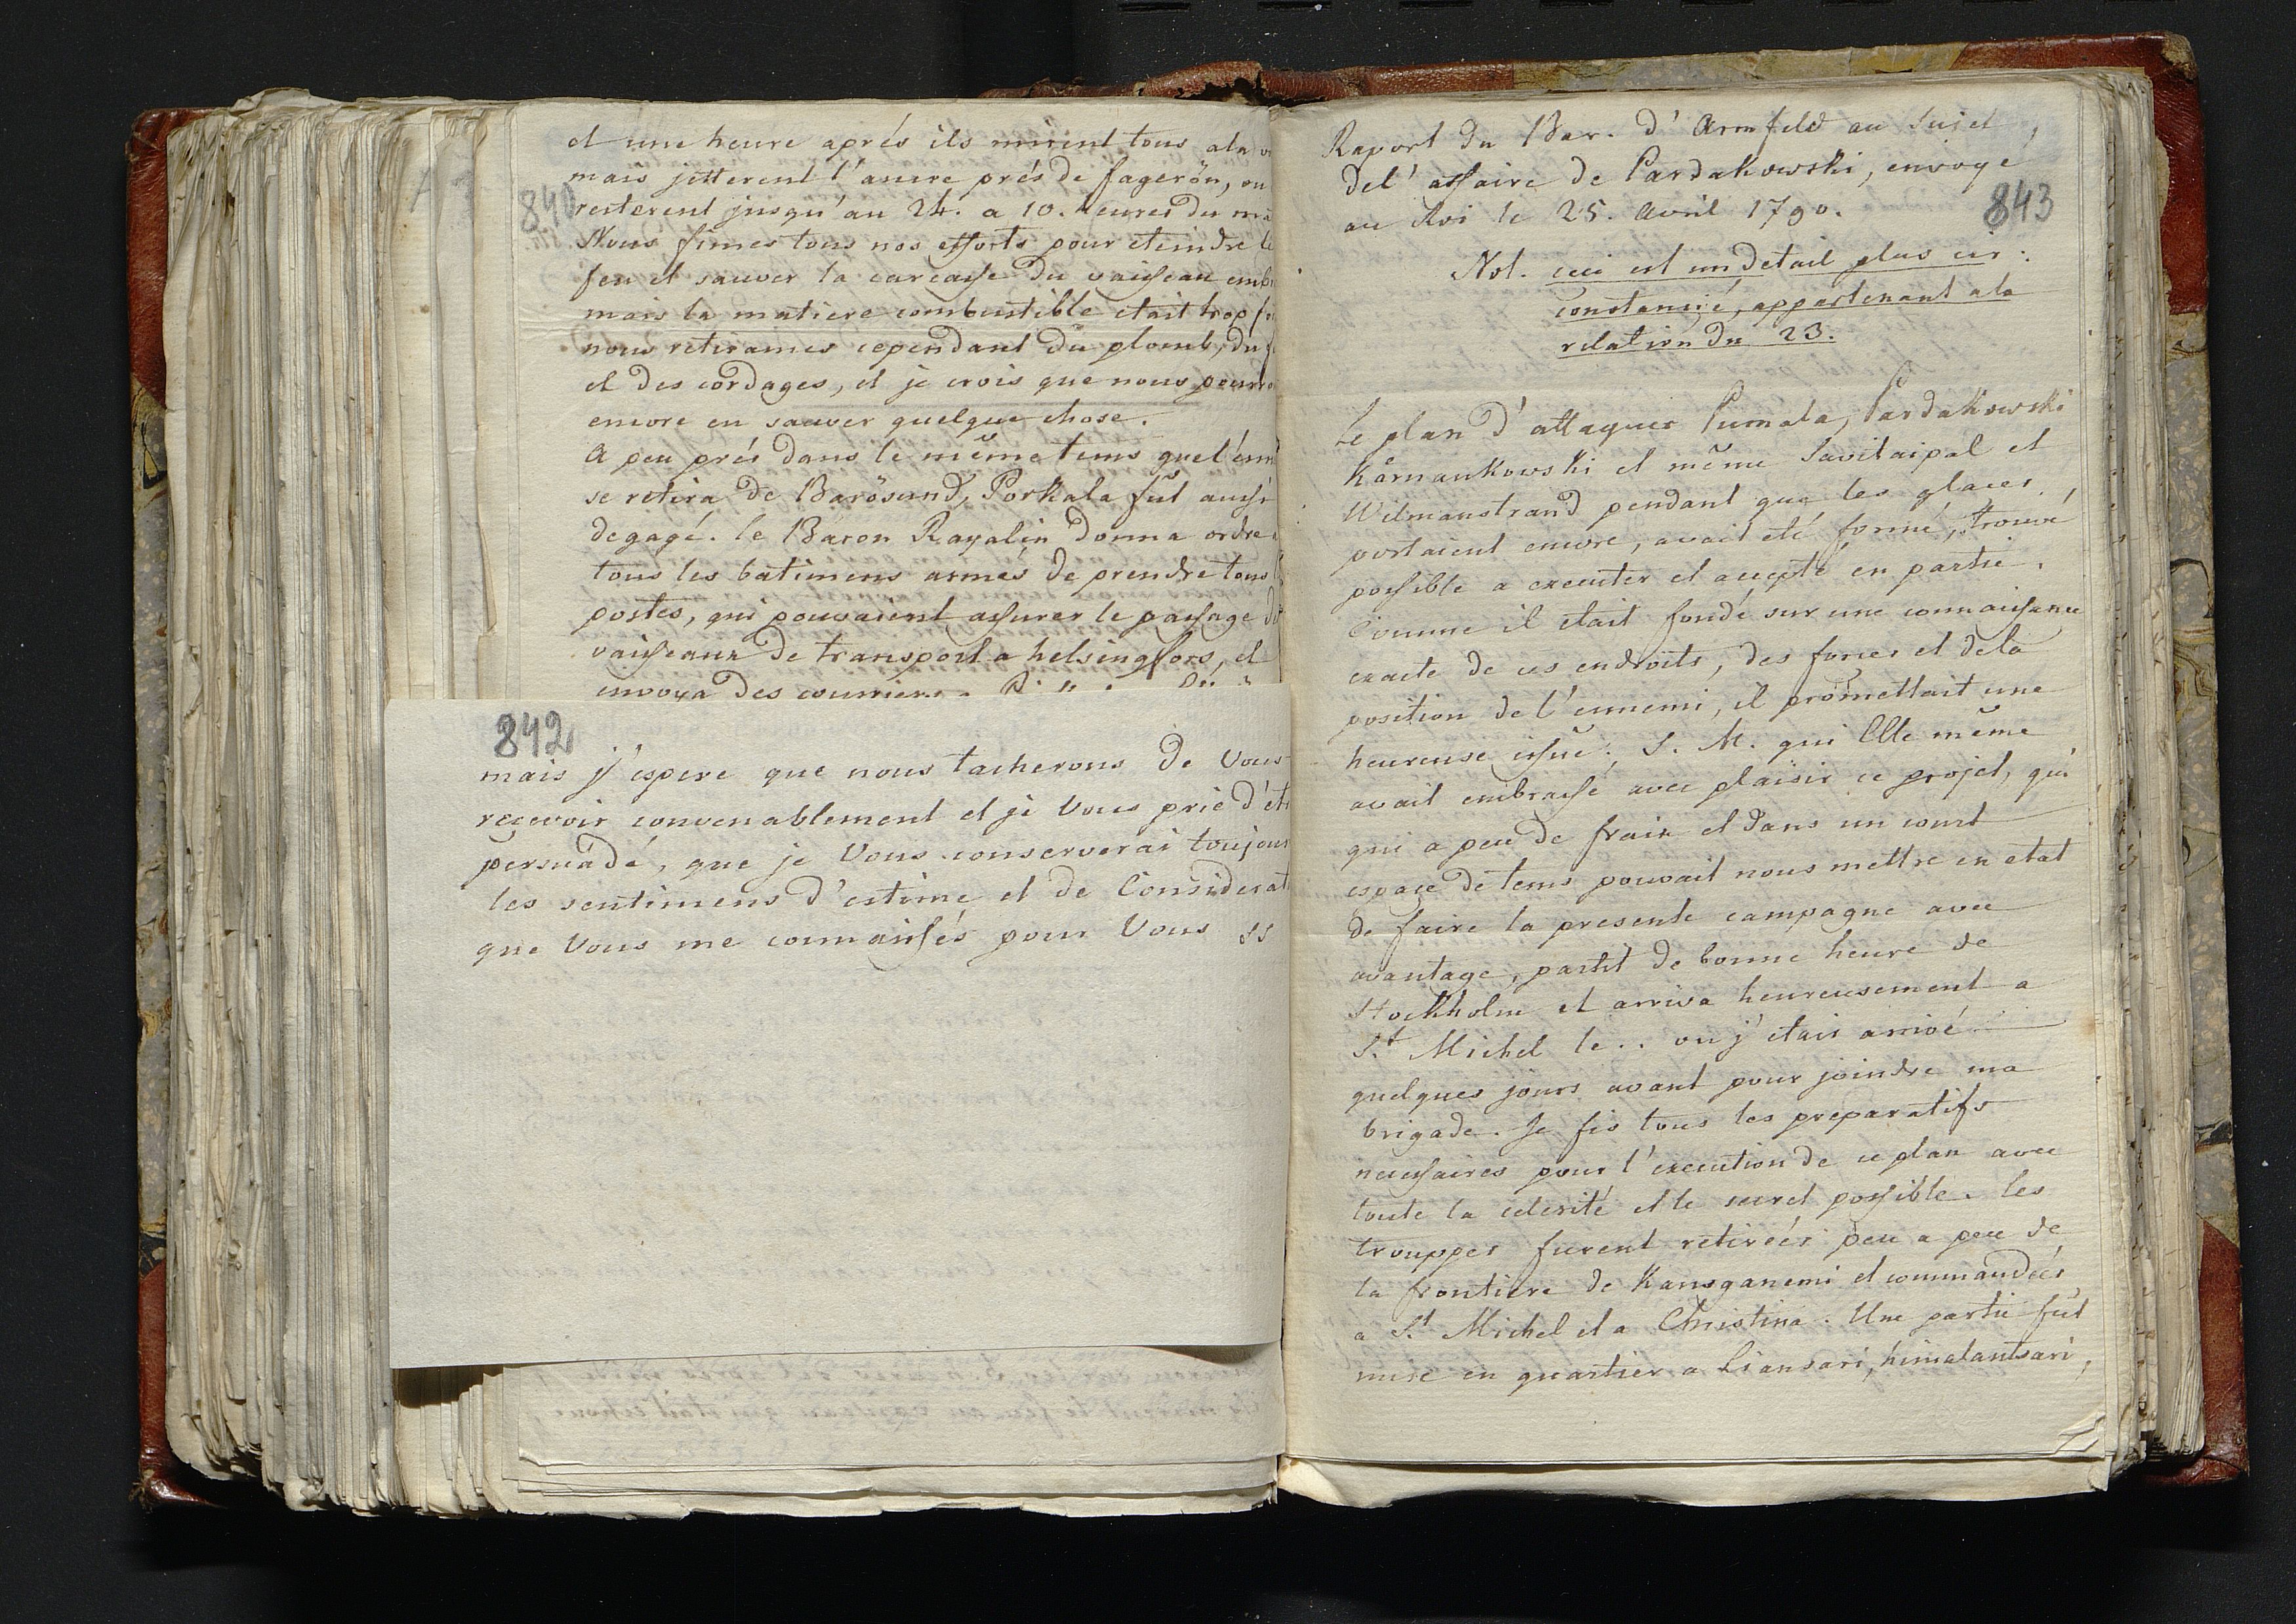 840
et une heure aprés ils mirent tous ala
mais jetterent l'ancre prés de fagerön, ou
resterent jusqu'au 24. a 10. heures du
Nous fimes tous nos efforts pour eteindre le
feu et sauver la carcasse du vaisseau
mais la matiere combustible etait trop
nous retirames cependant du plomb, du
et des cordages, et je crois que nous
encore en sauver quelque chose.
A peu prés dans le même tems que l'
se retira de Barösund, Porkala fut aussi
degagé. le Baron Rayalin donna ordre
tous les batimens armés de prendre tous
postes, qui pouvaient assurer le passage
vaisseaux de transport a helsingfors, et
envoya des couriers
842
mais j'espere que nous tacherons de Vous
recevoir convenablement et je Vous prie d'
persuadé, que je Vous conserverai
les sentimens d'estime et de
que Vous me connaissés pour Vous ss
Raport du Bar. d'Armfeld au sujet
del' affaire de Pardakowski, envoyé
au Roi le 25. Avril 1790.
843
Not. ceci est un detail plus cir:
constancié, appartenant ala
relation du 23.
Le plan d'attaquer Pumala, Pardakowski
Kärnankowski et même Savitaipal et
Wilmanstrand pendant que les glaces
portaient encore, avait eté formé, trouvé
possible a executer et accepté en partie.
Comme il etait fondé sur une connaissance
exacte de ces endroits, des forces et dela
position de l'ennemi, il promettait une
heureuse issue; S. M. qui Elle même
avait embrassé avec plaisir ce projet, qui
qui a peu de fraix et dans un court
espace de tems pouvait nous mettre en etat
de faire la presente campagne avec
avantage, partit de bonne heure de
Stockholm et arriva heureusement a
St. Michel le.. ou j'etais arrivé
quelques jours avant pour joindre ma
brigade. Je fis tous les preparatifs
necessaires pour l'execution de ce plan avec
toute la celerité et le secret possible. les
trouppes furent retirées peu a peu de
la frontiere de Kansganemi et commandées
a St. Michel et a Christina. Une partie fut
mise en quartier a Liansari, himalantsari,